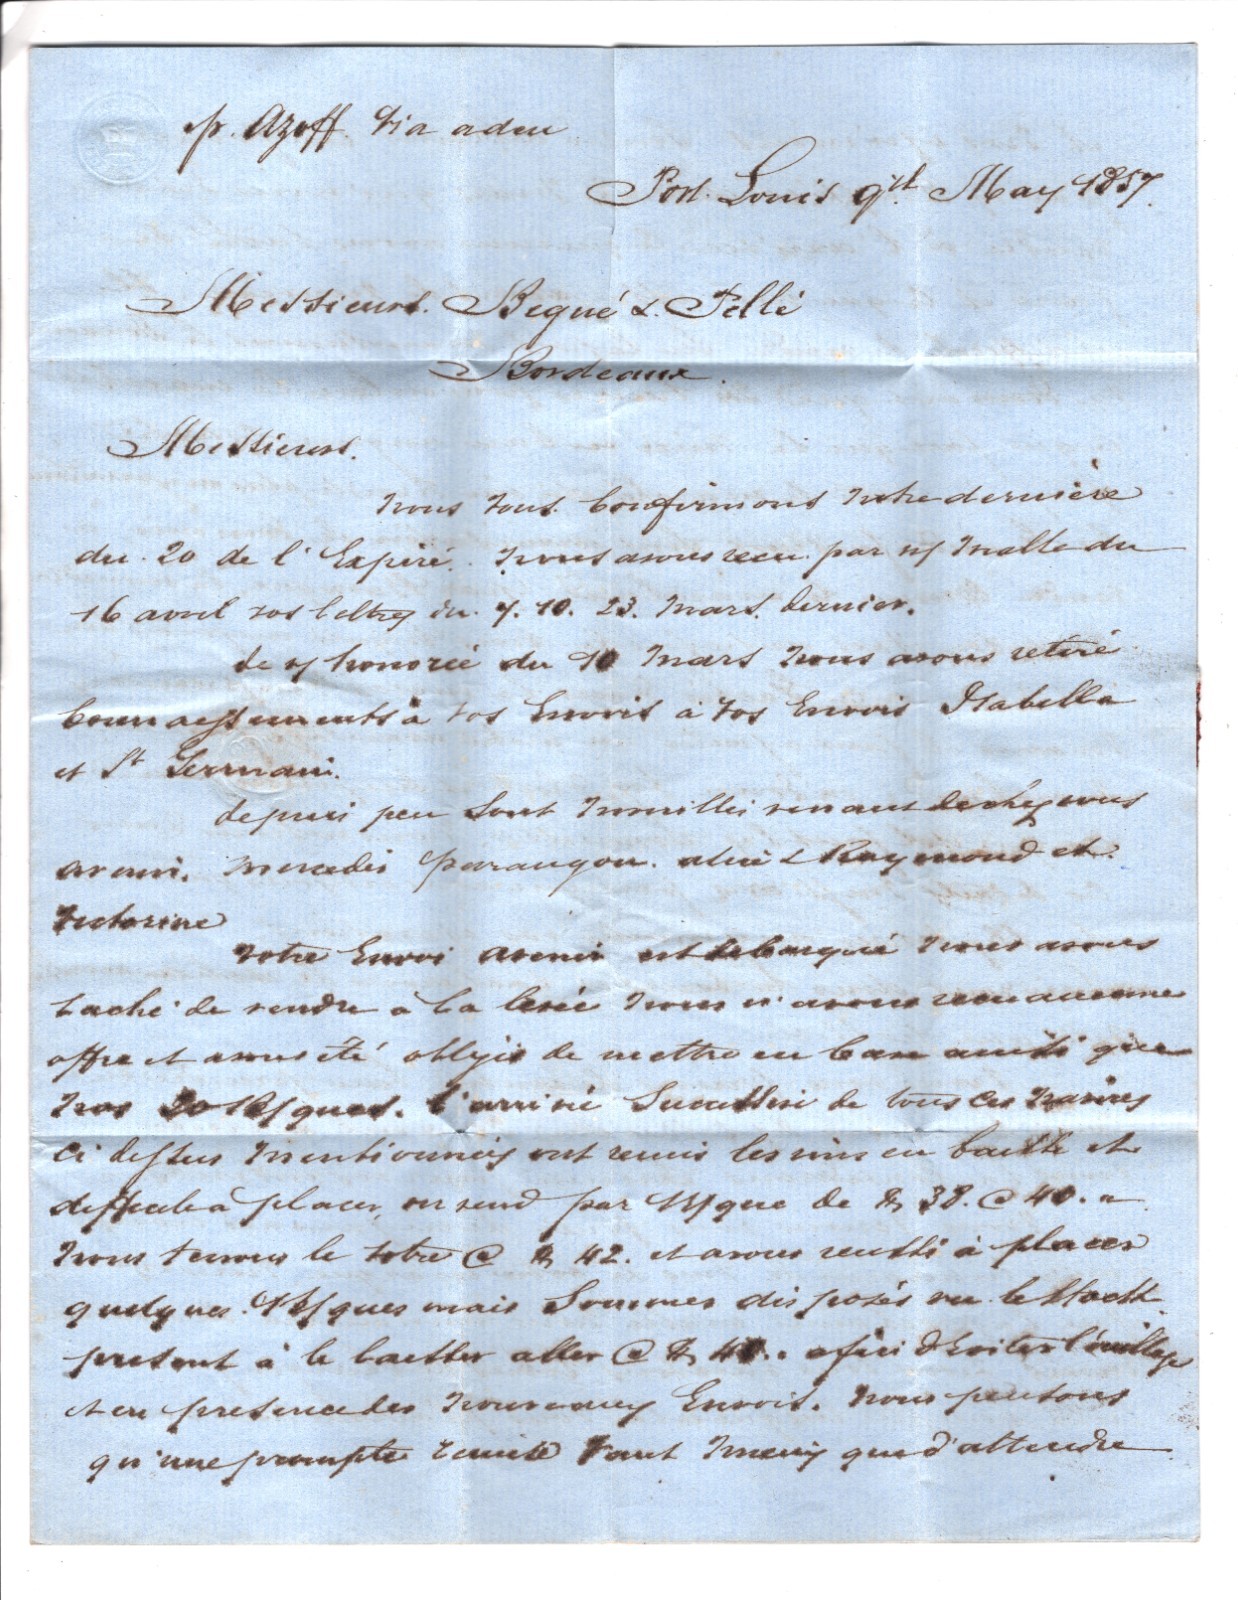 p. Azoff. via aden
Port. Louis 9 May 1857.
Messieurs. Bequé & Pellé
Bordeaux.
Messieurs.
Nous vous Confirmons notre dernière
du 20 de l'Expiré. Nous avons recu par malle du
16 avril vos lettres du 7. 10. 23. Mars. dernier.
de v/ honorée du 10 Mars Nous avons retiré
Connaissements à vos Envois à vos Envois Isabella
et St Germain.
depuis peu sont mouillés venant de chez vous
avenir. mercedes parangon. Raymond et.
Victorine
Votre Envoi avenir est debarqué Nous avons
taché de vendre à la Nous n'avons recu aucune
offre et avons été obligés de mettre en Cave ainsi que
nos 20 B/ques. l'arrivée Successive de tous ces Navires
ci dessus mentionnés ont remis les vins en baisse et
difficile à placer, on vend par B/que de 38. @ 40. "
nous tenons le votre @ 42. et avons reussi à placer
quelques. B/ques mais Sommes disposés vu le Stock
present à le laisser aller @ afin d'Eviter l'ouillage
et en presence des nouveaux Envois. Nous pensons
qu'une prompte vente Vaut mieux que d'attendre